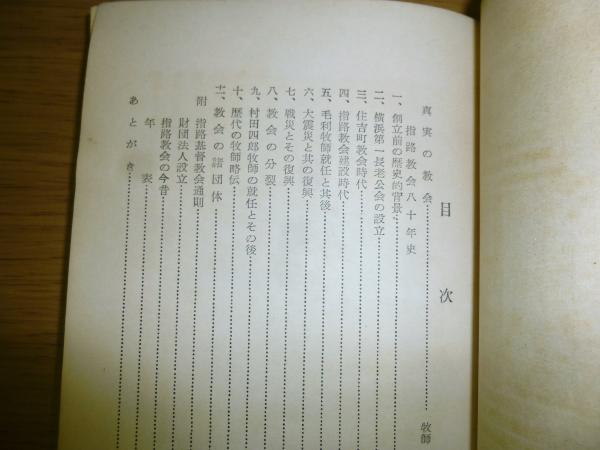 目次
真実の教会……牧師
指路教会八十年史
一、創立前の歴史的背景
二、横浜第一長老公会の設立
三、住吉町教会時代
四、指路教会建設時代
五、毛利牧師就任と其後
六、大震災と其の復興
七、戦災とその復興
八、教会の分裂
九、村田四郎牧師の就任とその後
十、歴代の牧師略伝
十一、教会の諸団体
附 指路基督教会通則
財団法人設立
指路教会の今昔
年表
あとがき